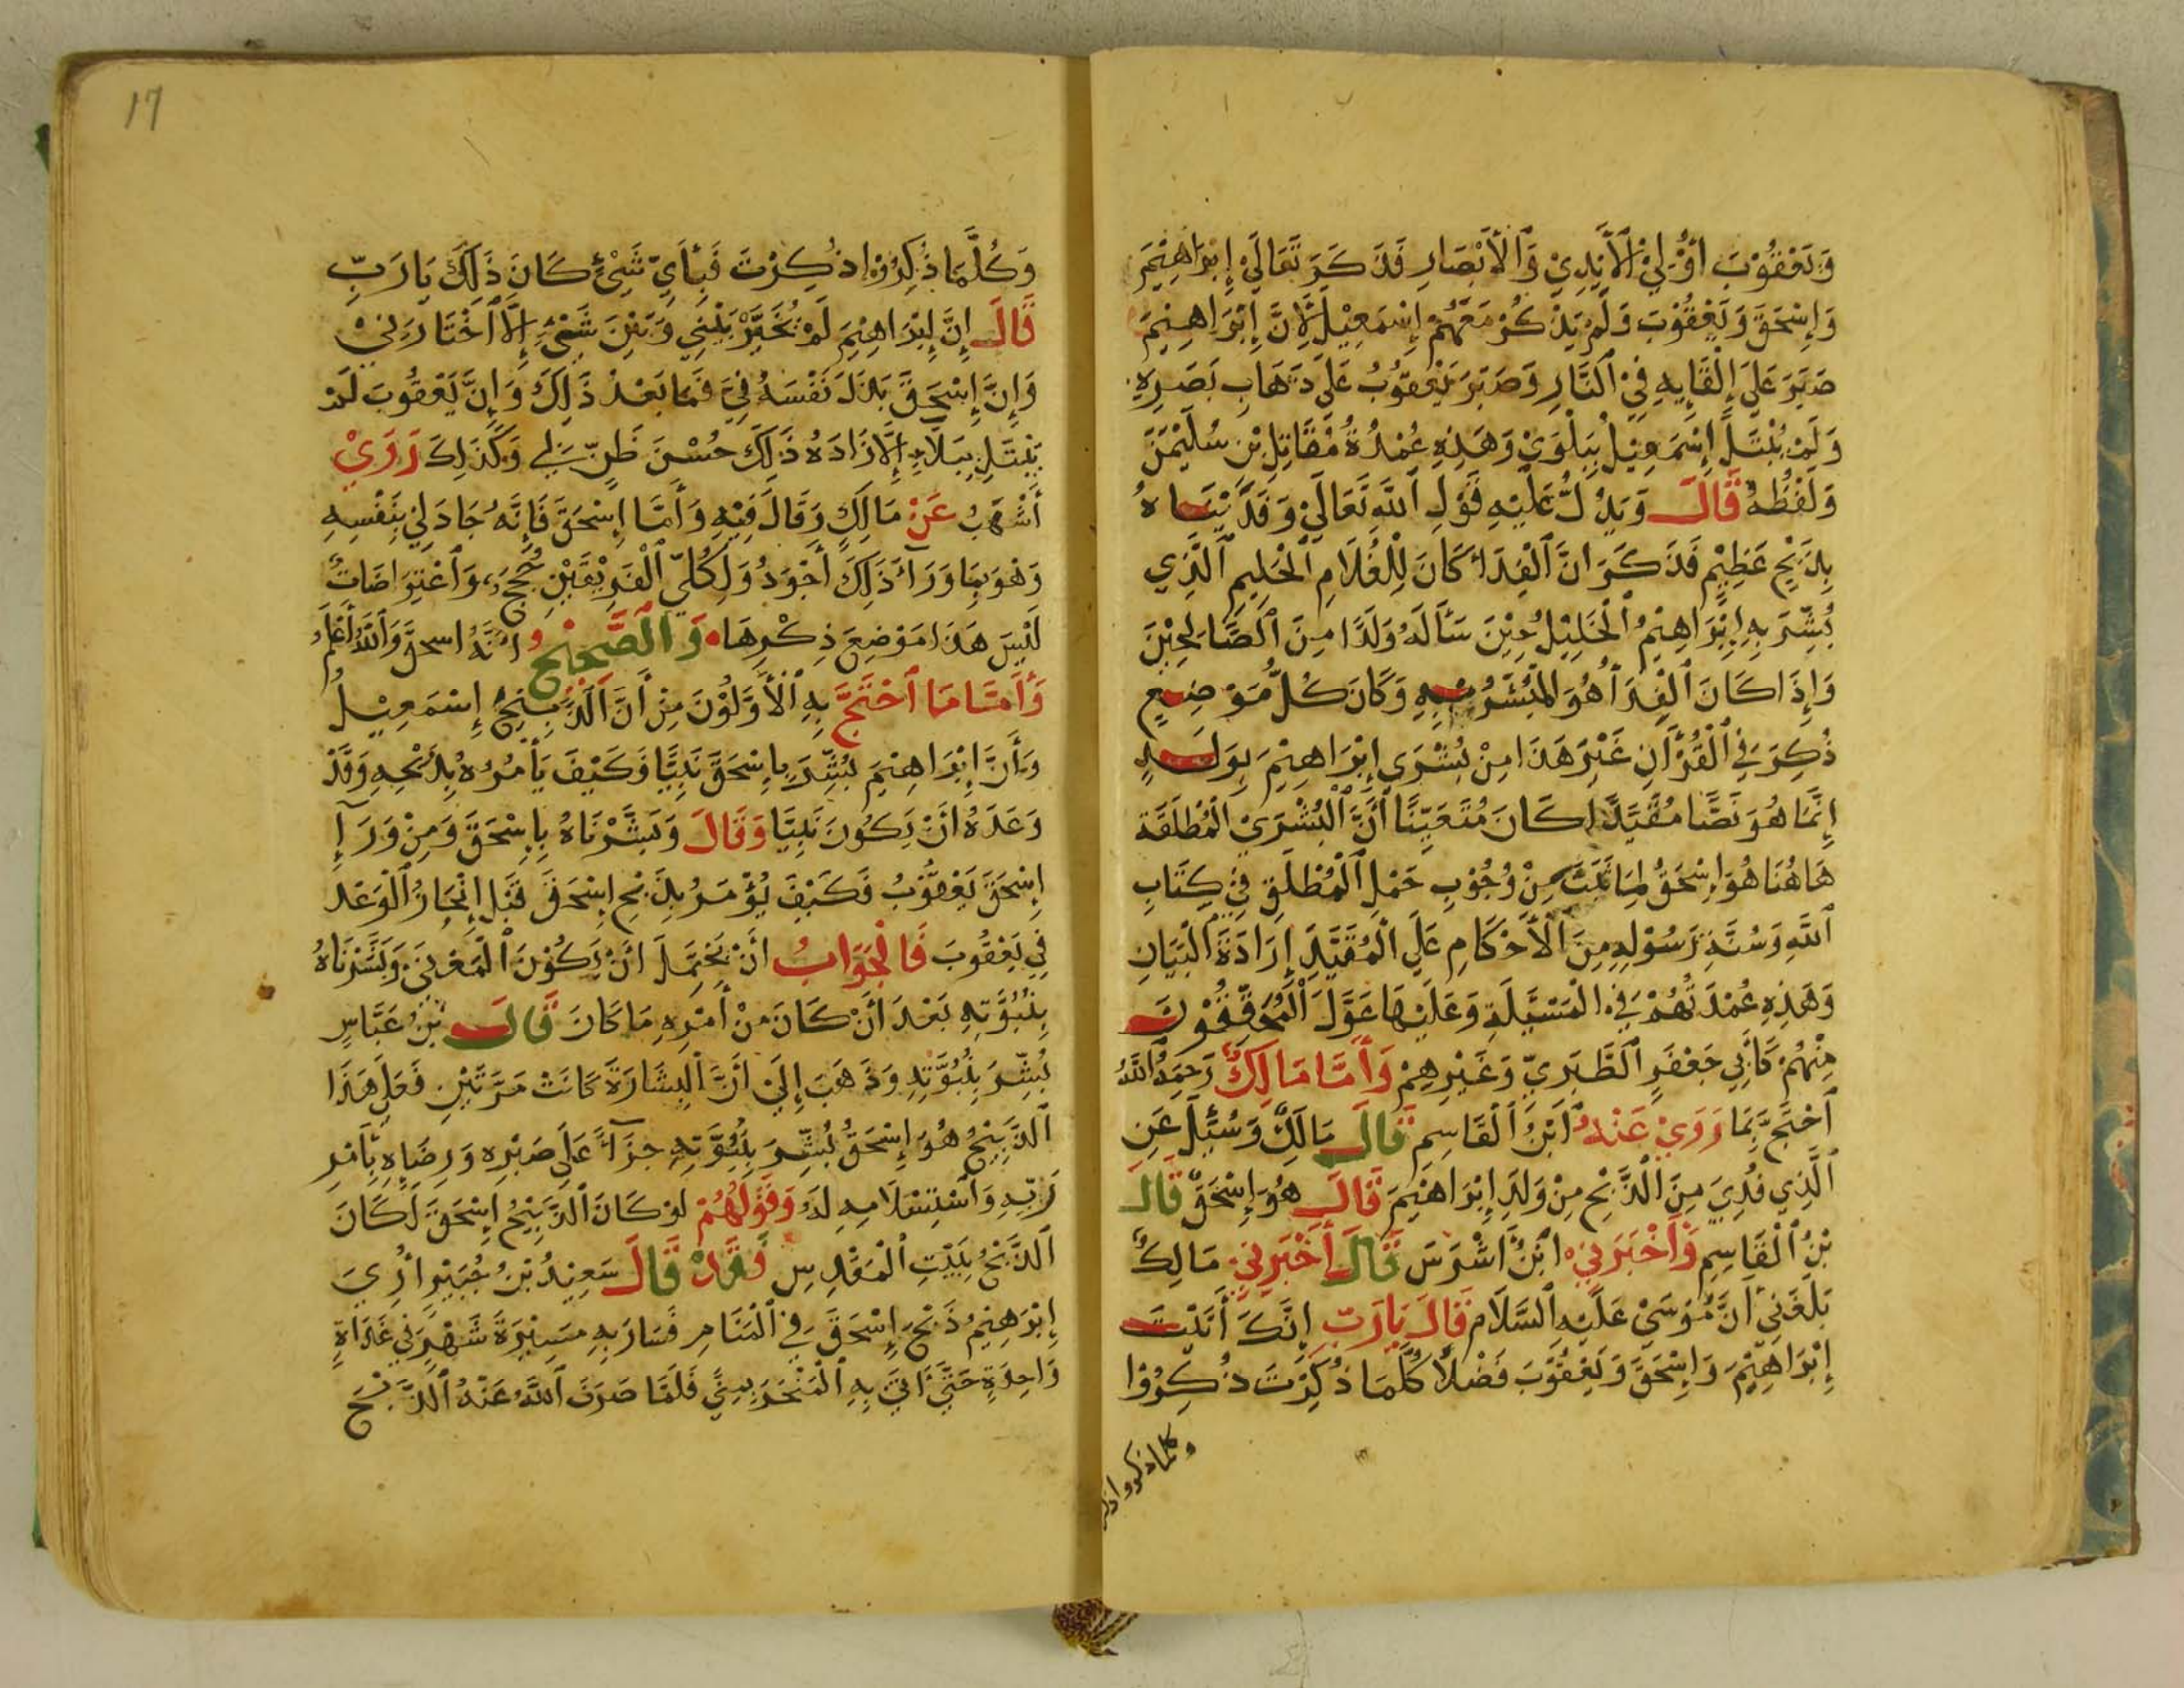 وَيَعْقُوْبَ أُوْلِيْ الْأَيْدِيْ وَالْأَبْصَارِ فَذَكَرَ تَعَالَيْ إِبْرَاهِيْمَ
وَإِسْحَقَ وَيَعْقُوْبَ وَلَمْ يَذْكُرْ مَعَهُمْ إِسْمَعِيْلَ لِأَنَّ إِبْرَاهِيْمَ
صَبَرَ عَلَي إِلْقَايِهِ فِيْ النَّارِ وَصَبَرَ يَعْقُوْبُ عَلَي ذَهَابِ بَصَرِهِ
وَلَمْ يُبْتَلَ إِسْمَعِيْلُ بِبَلْوَيْ وَهَذِهِ عُمْدَةُ مُقَاتِلِ بْنِ سُلَيْمَنَ
وَلَفْظُهُ قَالَ وَيَدُلُّ عَلَيْهِ قَوْلِ اللَّهِ تَعَالَيْ وَفَدَيْنَاهُ
بِذِبْحٍ عَظِيْمٍ فَذَكَرَ انَّ الْفِدَاءَ كَانَ لِلْغُلَامِ الْحَلِيمِ الَّذِي
بُشِّرَ بِهِ إِبْرَاهِيْمُ الْخَلِيْلُ حِيْنَ سَأَلَهُ وَلَدًا مِنَ الصَّالِحِيْنَ
وَإِذَا كَانَ الْفِدَا هُوَ الْمُبَشَّرُ بِهِ وَكَانَ كُلُّ مَوْضِعٍ
ذُكِرَ فِي الْقُرْآنِ غَيْرَ هَذَا مِنْ بُشْرَي إِبْرَاهِيْمَ بِوَلَدٍ
إِنَّمَا هُوَ نَصًّا مُقَيَّدًا كَانَ مُتَعَيِّنًا أَنَّ الْبُشْرَيْ الْمُطْلَقَةَ
هَاهُنَا هُوَ إِسْحَقُ لِمَا ثَبَتَ مِنْ وُجُوْبِ حَمْلِ الْمُطْلَقِ فِيْ كِتَابِ
اللَّهِ وَسُنَّةِ رَسُوْلِهِ مِنَ الْأَحْكَامِ عَلَي الْمُقَيَّدِ إِرَادَةَ الْبَيَانِ
وَهَذِهِ عُمْدَتُهُمْ فِي الْمَسْئَلَةِ وَعَلَيْهَا عَوَّلَ الْمُحَقِّقُوْنَ
مِنْهُمْ كَأَبِي جَعْفَرٍ الطَّبَرِيِّ وَغَيْرِهِمْ وَأَمَّا مَالِكٌ رَحِمَهُ اللَّهُ
اَحْتَجَّ بِمَا رَوَيْ عَنْهُ ابْنُ الْقَاسِمِ قَالَ مَالِكٌ وَسُئِلَ عَنِ
الَّذِي فُدِيَ مِنَ الذَّبْحِ مِنْ وَلَدِ إِبْرَاهِيْمَ قَالَ هُوَ إِسْحَقُ قَالَ
بْنُ الْقَاسِمِ وَأَخْبَرَنِيْ ابْنُ أَشْرَسَ قَالَ أَخْبَرَنِيْ مَالِكٌ
بَلَغَنِي أَنَّ مُوْسَيْ عَلَيْهِ السَّلَامُ قَالَ يَارَبِّ إِنَّكَ أَتَيْتَ
إِبْرَاهِيْمَ وَإِسْحَقَ وَيَعْقُوْبَ فَضْلًا كُلَّمَا ذُكِرْتَ ذُكِرُوْا
وكلما ذكروا ذكر
17
وَكُلَّمَا ذُكِرُوْا ذُكِرْتَ فَبِأَيِّ شَيْءٍ كَانَ ذَلِكَ يَارَبِّ
قَالَ إِنَّ إِبْرَاهِيْمَ لَمْ يُخَيَّرْ بَيْنِي وَبَيْنَ شَيْءٍ إِلَّا اخْتَارَنِيْ
وَإِنَّ إِسْحَقَ بَذَلَ نَفْسَهُ فِيَّ فَمَا بَعْدَ ذَلِكَ وَإِنَّ يَعْقُوبَ لَمْ
يُبْتَلَ بِبَلَاءٍ إِلَّا زَادَهُ ذَلِكَ حُسْنَ ظَنٍّ بِي وَكَذَلِكَ رَوَيْ
أَشْهَبُ عَنْ مَالِكٍ وَقَالَ فِيْهِ وَأَمَّا إِسْحَقَ فَإِنَّهُ جَادَ لِيْ بِنَفْسِهِ
وَهُوَ بِمَا وَرَآءَ ذَلِكَ أَجْوَدُ وَلِكُلِّ الْفَرِيْقَيْنِ حُجَجٌ وَاعْتِرَاضَاتٌ
لَيْسَ هَذَا مَوْضِعَ ذِكْرِهَا وَالصَّحِيْحُ أَنَّهُ اسحق وَاللَّهُ أَعْلَمُ
وَأَمَّا مَا احْتَجَّ بِهِ الْأَوَّلُوْنَ مِنْ أَنَّ الذَّبِيْحَ إِسْمَعِيْلُ
وَأَنَّ إِبْرَاهِيْمَ بُشِّرَ بِإِسْحَقَ نَبِيًّا فَكَيْفَ يَأْمُرُهُ بِذَبْحِهِ وَقَدْ
وَعَدَهُ أَنْ يَكُوْنَ نَبِيًّا وَقَالَ وَبَشَّرْنَاهُ بِإِسْحَقَ وَمِنْ وَرَآءِ
إِسْحَقَ يَعْقُوْبُ فَكَيْفَ يُؤْمَرُ بِذَبْحِ إِسْحَقَ قَبْلَ إِنْجَازِ الْوَعْدِ
فِي يَعْقُوبَ فَالْجَوَابُ أَنْ يَحْتَمِلَ أَنْ يَكُوْنَ الْمَعْنَيْ وَبَشَّرْنَاهُ
بِنُبُوَّتِهِ بَعْدَ أَنْ كَانَ مِنْ أَمْرِهِ مَا كَانَ قَالَ بْنُ عَبَّاسٍ
بُشِّرَ بِنُبُوَّتِهِ وَذَهَبَ إِلَيْ أَنَّ الْبِشَارَةَ كَانَتْ مَرَّتَيْنِ فَعَلَي هَذَا
الذَّبِيْحُ هُوَ إِسْحَقُ بُشِّرَ بِنُبُوَّتِهِ جَزَآءً عَلَي صَبْرِهِ وَرِضَاهِ بِأَمْرِ
رَبِّهِ وَاسْتِسْلَامِهِ لَهُ وَقَوْلُهُمْ لَوْ كَانَ الذَّبِيْحُ إِسْحَقَ لَكَانَ
الذَّبْحُ بِبَيْتِ الْمَقْدِسِ فَقَدْ قَالَ سَعِيْدُ بْنُ جُبَيْرٍ أُرِيَ
إِبْرَهِيْمُ ذَبْحَ إِسْحَقَ فِي الْمَنَامِ فَسَارَ بِهِ مَسِيْرَةَ شَهْرٍ فِي غَدَاةٍ
وَاحِدَةٍ حَتَّي أَتَيَ بِهِ الْمَنْحَرَ بِمِنًي فَلَمَّا صَرَفَ اللَّهُ عَنْهُ الذَّبْحَ